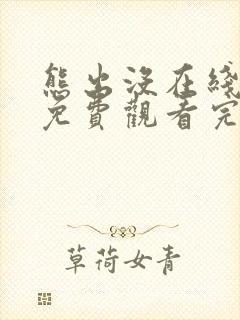 熊出没在綫
免費觀看完
草荷女青